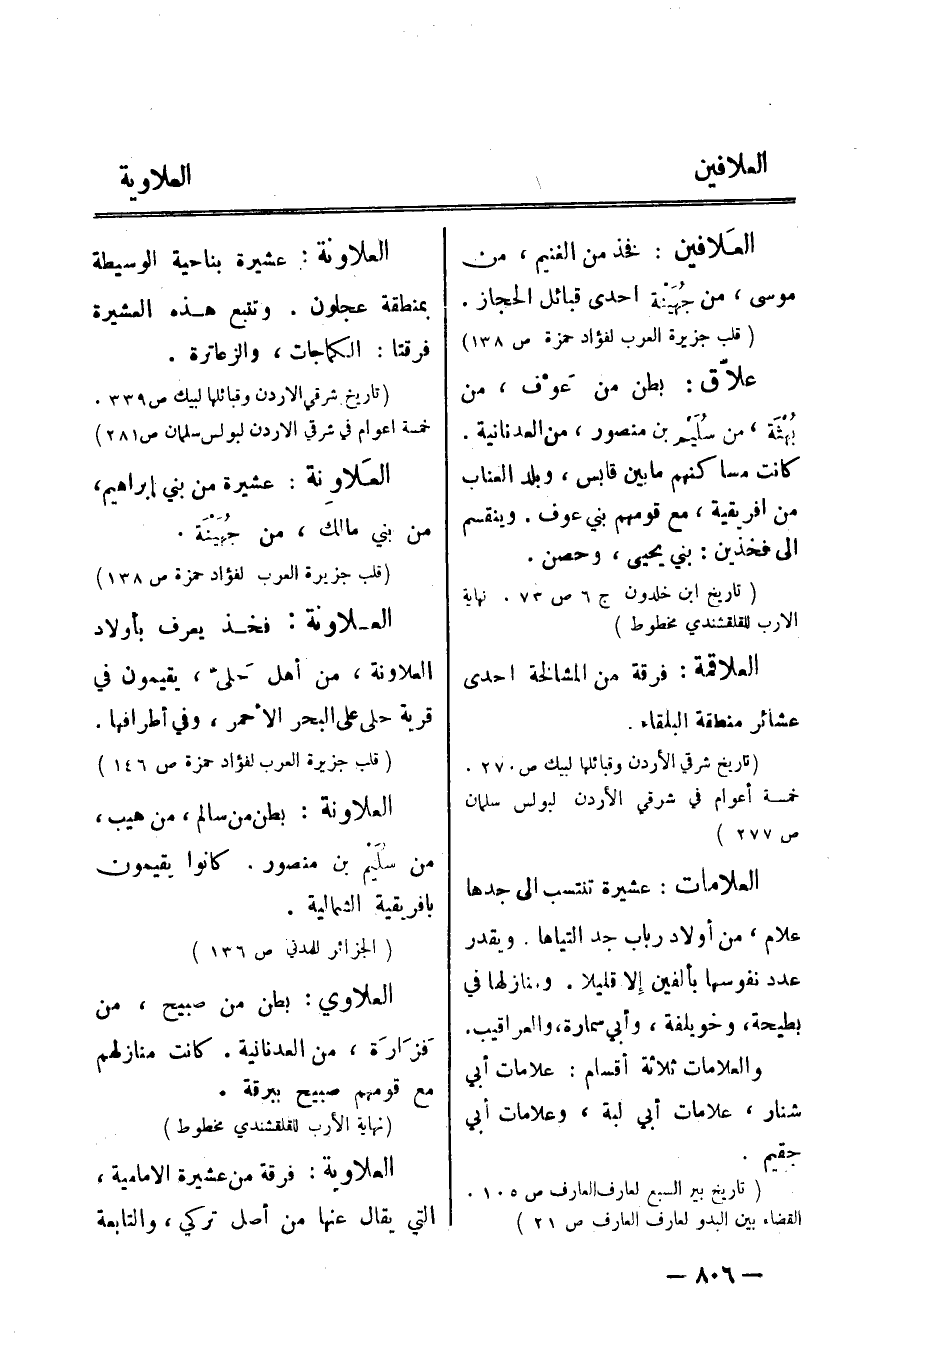 العلافين
العلاوية
العَلافين : فخذ من الغنيم ، من
موسى ، من جُهَيْنَة احدى قبائل الحجاز .
( قلب جزيرة العرب لفؤاد حمزة ص ١٣٨)
علاَّق : بطن من عَوْف ، من
بُهْثَة ، من سُلَيْم بن منصور ، من العدنانية .
كانت مساكنهم مابين قابس ، وبلد العناب
من افريقية ، مع قومهم بني عوف . وينقسم
الى فخذين : بني يحيى ، وحصن .
( تاريخ ابن خلدون ج ٦ ص ٧٣ . نهاية
الارب للقلقشندي مخطوط )
العلاقمة : فرقة من المشالخة احدى
عشائر منطقة البلقاء .
(تاريخ شرقي الأردن وقبائلها لبيك ص٢٧٠ .
خمسة أعوام في شرقي الأردن لبولس سلمان
ص ٢٧٧ )
العلامات : عشيرة تنتسب الى جدها
علام ، من أولاد رباب جد التياها . ويقدر
عدد نفوسها بألفين إلا قليلا . ومنازلها في
بطيحة، وخويلفة ، وأبي سمارة، والعراقيب.
والعلامات ثلاثة أقسام : علامات أبي
شنار ، علامات أبي لبة ، وعلامات أبي
جقيم .
( تاريخ بير السبع لعارف العارف ص ١٠٥ .
القضاء بين البدو لعارف العارف ص ٢١ )
العلاونة : عشيرة بناحية الوسيطة
بمنطقة عجلون . وتتبع هذه العشيرة
فرقتا : الكماجات ، والزعاترة .
(تاريخ شرقي الاردن وقبائلها لبيك ص٣٣٩ .
خمسة اعوام في شرقي الاردن لبولس سلمان ص٢٨١)
العَلاوِنة : عشيرة من بني إبراهيم،
من بني مالك ، من جُهَيْنَة .
(قلب جزيرة العرب لفؤاد حمزة ص ١٣٨)
العـلاونة : فخـذ يعرف بأولاد
العلاونة ، من أهل حَلي ، يقيمون في
قرية حلى على البحر الأحمر ، وفي أطرافها .
( قلب جزيرة العرب لفؤاد حمزة ص ١٤٦ )
العلاونة : بطن من سالم ، من هيب ،
من سُلَيْم بن منصور . كانوا يقيمون
بافريقية الشمالية .
( الجزائر للمدني ص ١٣٦ )
العلاوي : بطن من صبيح ، من
فَزَارَة ، من العدنانية . كانت منازلهم
مع قومهم صبيح ببرقة .
(نهاية الأرب للقلقشندي مخطوط )
العلاوية : فرقة من عشيرة الامامية ،
التي يقال عنها من أصل تركي ، والتابعة
— ٨٠٦ —